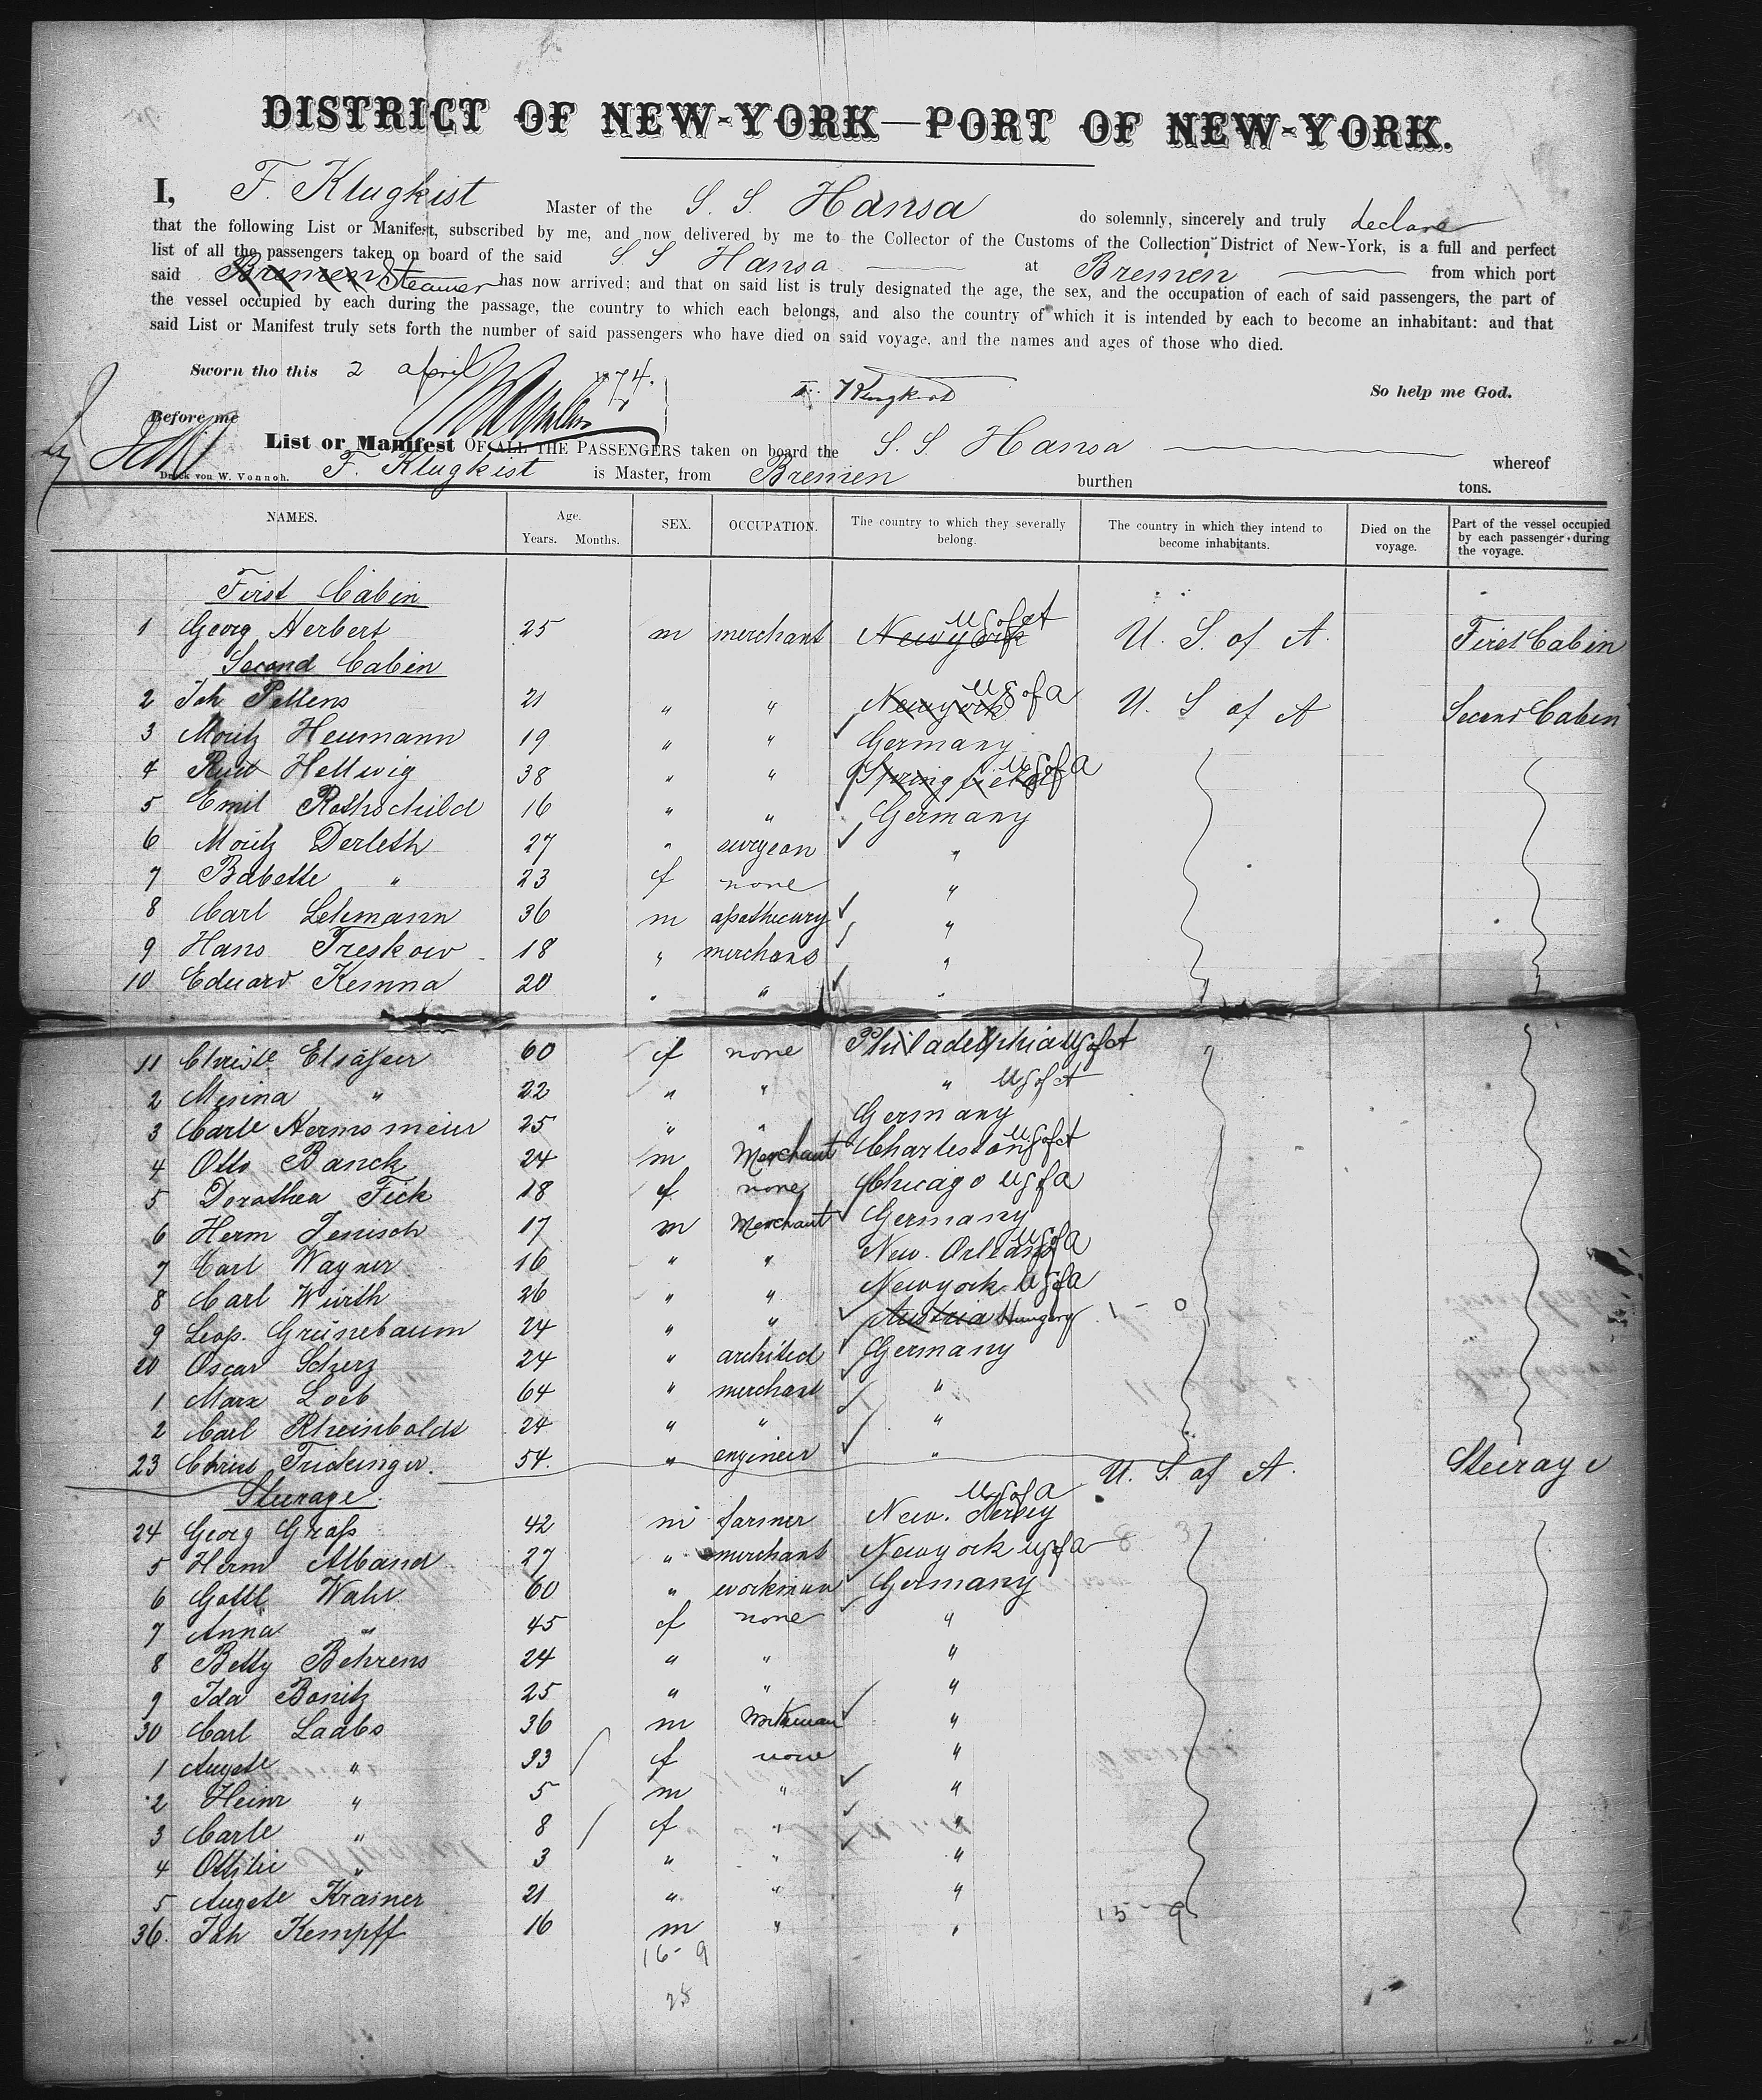 DISTRICT OF NEW-YORK—PORT OF NEW-YORK.
I, F. Klugkist Master of the S. S. Hansa do solemnly, sincerely and truly declare
that the following List or Manifest, subscribed by me, and now delivered by me to the Collector of the Customs of the Collection District of New-York, is a full and perfect
list of all the passengers taken on board of the said S S Hansa at Bremen from which port
said Bremen Steamer has now arrived; and that on said list is truly designated the age, the sex, and the occupation of each of said passengers, the part of
the vessel occupied by each during the passage, the country to which each belongs, and also the country of which it is intended by each to become an inhabitant: and that
said List or Manifest truly sets forth the number of said passengers who have died on said voyage, and the names and ages of those who died.
Sworn tho this 2 april 1874. F. Klugkist So help me God.
Before me
List or Manifest OF ALL THE PASSENGERS taken on board the S. S. Hansa whereof
Druck von W. Vonnoh. F. Klugkist is Master, from Bremen burthen tons.
NAMES. Age. Years. Months. SEX. OCCUPATION. The country to which they severally belong. The country in which they intend to become inhabitants. Died on the voyage. Part of the vessel occupied by each passenger during the voyage.
First Cabin
1 Georg Herbert 25 m merchant Newyork U S of A U. S. of A. First Cabin
Second Cabin
2 Joh Pellens 21 " " Newyork U S of A U. S of A Second Cabin
3 Moritz Heumann 19 " " Germany
4 Rud Hellwig 38 " " Springfield U S of A
5 Emil Rothschild 16 " " Germany
6 Moritz Derleth 27 " surgeon "
7 Babette " 23 f none "
8 Carl Lehmann 36 m apothecary "
9 Hans Treskow 18 " merchant "
10 Eduard Kemna 20 " " "
11 Christe Elsaßer 60 f none Philadelphia U S of A
2 Mina " 22 " " " U S of A
3 Carle Hermsmeier 25 " " Germany
4 Otto Banck 24 m Merchant Charleston U S of A
5 Dorothea Fick 18 f none Chicago U S of A
6 Herm Jenisch 17 m Merchant Germany
7 Carl Wagner 16 " " New. Orleans U S of A
8 Carl Würth 26 " " Newyork U S of A
9 Leop. Grünebaum 24 " " Austria Hungary 1 - 0
20 Oscar Scherz 24 " architect Germany
1 Marx Loeb 64 " merchant "
2 Carl Rheinboldt 24 " " "
23 Christ Frickinger. 54. " engineer " U. S. of A. Steerage
Steerage.
24 Georg Graß 42 m farmer New. Jersey U S of A
5 Herm Alband 27 " merchant Newyork U S of A 8 3
6 Gottl Wahr 60 " workman Germany
7 Anna " 45 f none "
8 Betty Behrens 24 " " "
9 Ida Bonitz 25 " " "
30 Carl Laabs 36 m Workman "
1 Auguste " 33 f none "
2 Heinr " 5 m " "
3 Carle " 8 f " "
4 Ottilie " 3 " " "
5 Auguste Kramer 21 " " "
36 Joh Kempff 16 m " "
15 - 9
16 - 9